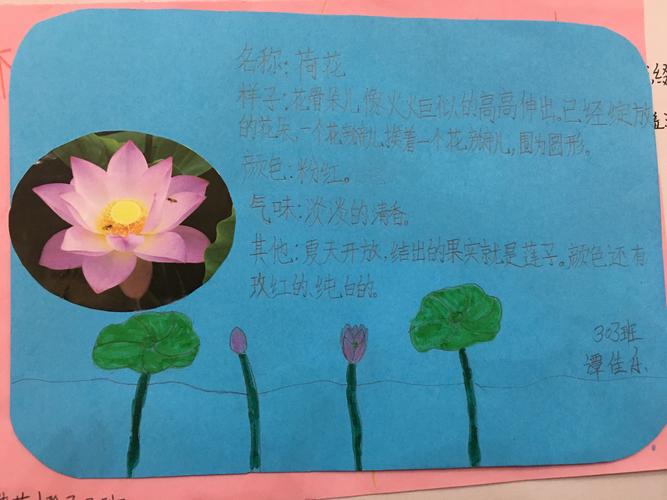 名称:荷花
样子:花骨朵儿像火火巨似的高高伸出。已经绽放
的花朵,一个花瓣儿挨着一个花瓣儿,围为圆形。
颜色:粉红。
气味:淡淡的清香。
其他:夏天开放,结出的果实就是莲子。颜色还有
玫红的、纯白的。
303班
谭佳乐